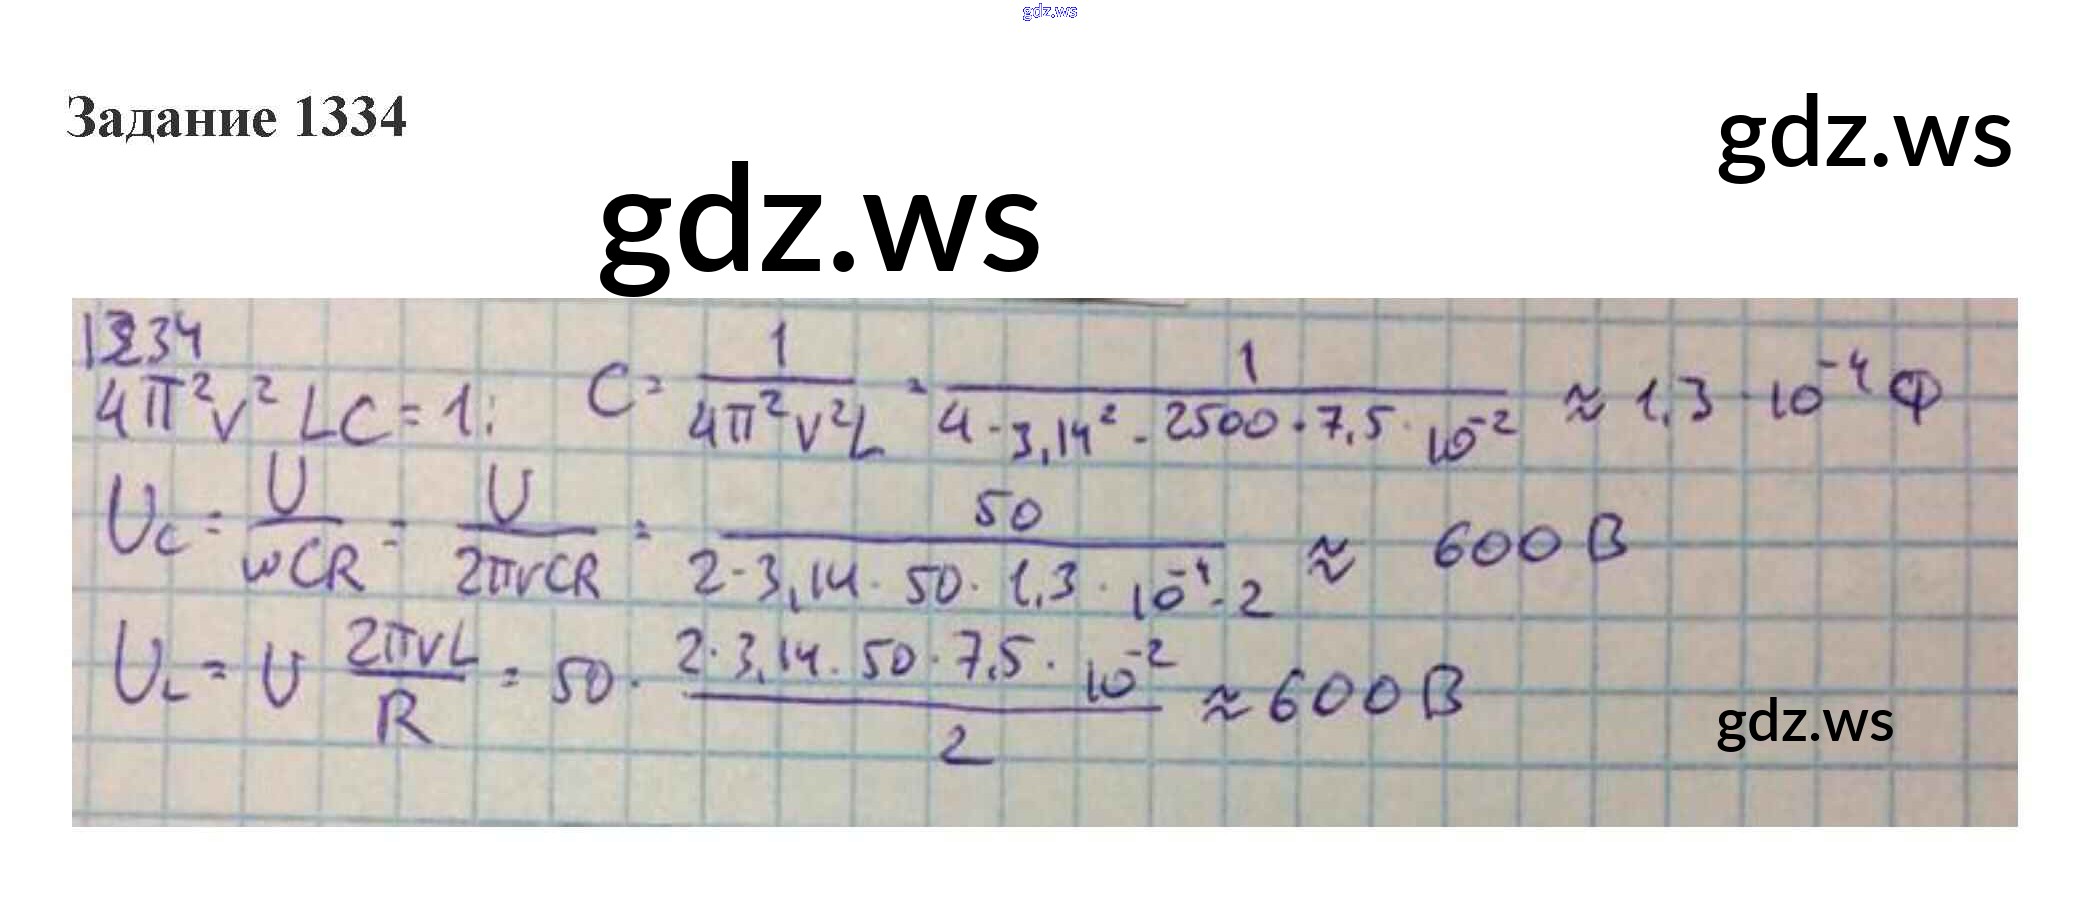 gdz.ws
Задание 1334
gdz.ws
gdz.ws
1334
4π²ν² LC = 1; C = 1 / 4π²ν²L = 1 / 4 · 3,14² · 2500 · 7,5 · 10⁻² ≈ 1,3 · 10⁻⁴ Ф
U_C = U / ωCR = U / 2πνCR = 50 / 2 · 3,14 · 50 · 1,3 · 10⁻⁴ · 2 ≈ 600 В
U_L = U 2πνL / R = 50 · 2 · 3,14 · 50 · 7,5 · 10⁻² / 2 ≈ 600 В
gdz.ws